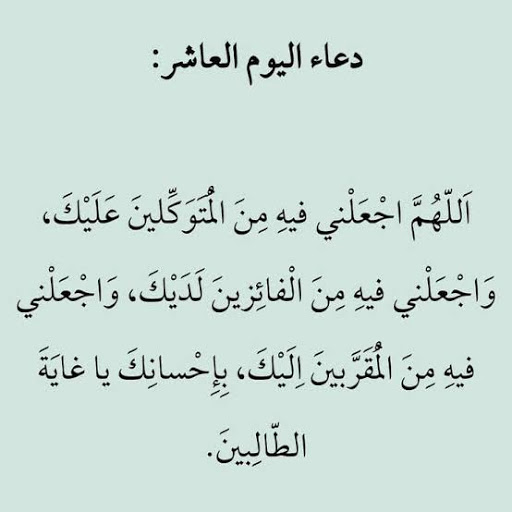 دعاء اليوم العاشر:
اَللّهُمَّ اجْعَلْني فيهِ مِنَ الْمُتَوَكِّلينَ عَلَيْكَ،
وَاجْعَلْني فيهِ مِنَ الْفائِزينَ لَدَيْكَ، وَاجْعَلْني
فيهِ مِنَ الْمُقَرَّبينَ اِلَيْكَ، بِإِحْسانِكَ يا غايَةَ
الطّالِبينَ.